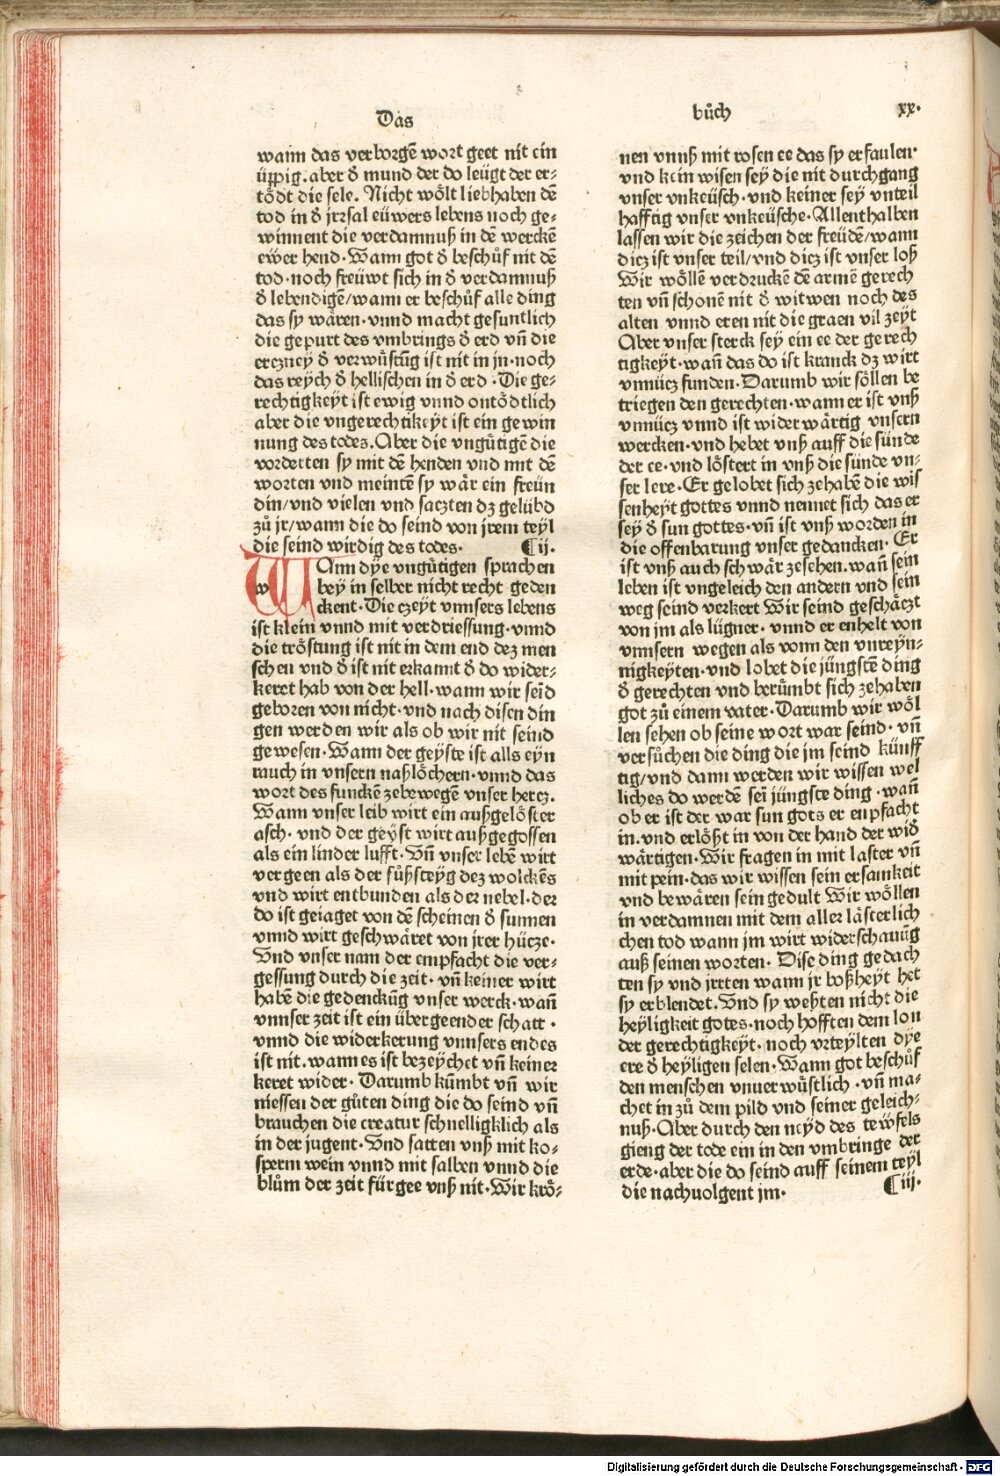 Das
bůch
xx.
wann das verborgē wort geet nit ein
üppig. aber ď mund der do leügt der er⸗
tȍdt die sele. Nicht wȍlt liebhaben dē
tod in ď jrrsal eüwers lebens noch ge⸗
winnent die verdamnuß in dē werckē
ewer hend. Wann got ď beschůf nit dē
tod. noch freüwt sich in ď verdamnuß
ď lebendigē/ wann er beschůf alle ding
das sy wåren. vnnd macht gesuntlich
die gepurt des vmbrings ď erd vñ die
erczney ď verwůstūg ist nit in jn. noch
das reych ď hellischen in ď erd. Die ge⸗
rechtigkeyt ist ewig vnnd ontȍdtlich
aber die vngerechtikeyt ist ein gewin
nung des todes. Aber die vngůtigē die
vordetten sy mit dē henden vnd mit dē
worten vnd meintē sy wår ein freün
din/ vnd vielen vnd saczten dz gelübd
zů jr/ wann die do seind von jrem teyl
die seind wirdig des todes. ¶ij.
WAnn dye vngůtigen sprachen
bey in selber nicht recht geden
ckent. Die czeyt vnnsers lebens
ist klein vnnd mit verdriessung. vnnd
die trȍstung ist nit in dem end dez men
schen vnd ď ist nit erkannt ď do wider⸗
keret hab von der hell. wann wir seīd
geboren von nicht. vnd nach disen din
gen werden wir als ob wir nit seind
gewesen. Wann der geyste ist alls eyn
rauch in vnsern naßlȍchern. vnnd das
wort des funckē zebewegē vnser hercz.
Wann vnser leib wirt ein außgelȍster
asch. vnd der geyst wirt außgegossen
als ein linder lufft. Vñ vnser lebē wirt
vergeen als der fůßsteyg dez wolckēs
vnd wirt entbunden als der nebel. der
do ist geiaget von dē scheinen ď sunnen
vnnd wirt geschwåret von jrer hücze.
Vnd vnser nam der empfacht die ver⸗
gessung durch die zeit. vñ keiner wirt
habē die gedenckūg vnser werck. wañ
vnnser zeit ist ein übergeender schatt.
vnnd die widerkerung vnnsers endes
ist nit. wann es ist bezeychet vñ keiner
keret wider. Darumb kūmbt vñ wir
niessen der gůten ding die do seind vñ
brauchen die creatur schnelligklich als
in der jugent. Vnd satten vnß mit ko⸗
sperm wein vnnd mit salben vnnd die
blům der zeit fürgee vnß nit. Wir krȍ⸗
nen vnnß mit rosen ee das sy erfaulen.
vnd kein wisen sey die nit durchgang
vnser vnkeüsch. vnd keiner sey vnteil
hafftig vnser vnkeüsche. Allenthalben
lassen wir die zeichen der freüdē/ wann
dicz ist vnser teil/ vnd dicz ist vnser loß
Wir wȍllē verdruckē dē armē gerech
ten vñ schonē nit ď witwen noch des
alten vnnd eren nit die graen vil zeyt
Aber vnser sterck sey ein ee der gerech
tigkeyt. wañ das do ist kranck dz wirt
vnnücz funden. Darumb wir sȍllen be
triegen den gerechten. wann er ist vnß
vnnücz vnnd ist widerwårtig vnsern
wercken. vnd hebet vnß auff die sünde
der ee. vnd lȍstert in vnß die sünde vn⸗
ser lere. Er gelobet sich zehabē die wis
senheyt gottes vnnd nennet sich das er
sey ď sun gottes. vñ ist vnß worden in
die offenbarung vnser gedancken. Er
ist vnß auch schwår zesehen. wañ sein
leben ist vngeleich den andern vnd sein
weg seind verkert Wir seind geschåczt
von jm als lügner. vnnd er enhelt von
vnnsern wegen als vonn den vnreyn⸗
nigkeyten. vnd lobet die jüngstē ding
ď gerechten vnd berůmbt sich zehaben
got zů einem vater. Darumb wir wȍl
len sehen ob seine wort war seind. vñ
versůchen die ding die jm seind künff
tig/ vnd dann werden wir wissen wel
liches do werdē sei jüngste ding. wañ
ob er ist der war sun gots er enpfacht
in. vnd erlȍßt in von der hand der wiď
wårtigen. Wir fragen in mit laster vñ
mit pein. das wir wissen sein ersamkeit
vnd bewåren sein gedult Wir wȍllen
in verdamnen mit dem aller låsterlich
chen tod wann jm wirt widerschauūg
auß seinen worten. Dise ding gedach
ten sy vnd jrrten wann jr boßheyt het
sy erblendet. Vnd sy weßten nicht die
heyligkeit gotes. noch hofften dem lon
der gerechtigkeyt. noch vrteylten dye
ere ď heyligen selen. Wann got beschůf
den menschen vnuerwůstlich. vñ ma⸗
chet in zů dem pild vnd seiner geleich⸗
nuß. Aber durch den neyd des tewfels
gieng der tode ein in den vmbringe der
erde. aber die do seind auff seinem teyl
die nachuolgent jm. ¶iij.
Digitalisierung gefördert durch die Deutsche Forschungsgemeinschaft - DFG